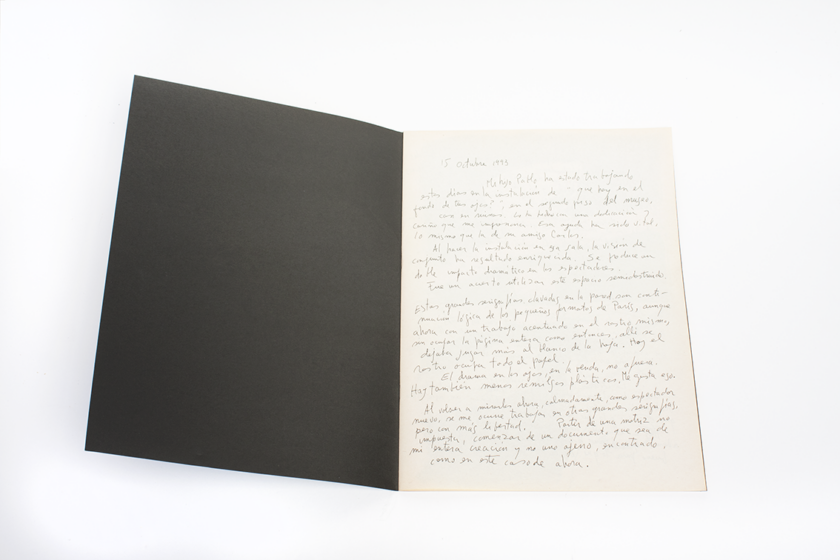 15 octubre 1993
Mi hijo Pablo ha estado trabajando
estos días en la instalación de "¿qué hay en el
fondo de tus ojos?", en el segundo piso del museo,
casi en ruinas. Lo ha hecho con una dedicación y
cariño que me impresiona. Esa ayuda ha sido vital.
Lo mismo que la de mi amigo Carlos.
Al hacer la instalación en esa sala, la visión de
conjunto ha resultado enriquecida. Se produce un
doble impacto dramático en los espectadores.
Fue un acierto utilizar este espacio semidestruido.
Estas grandes serigrafías clavadas en la pared son conti-
nuación lógica de los pequeños formatos de París, aunque
ahora con un trabajo acentuado en el rostro mismo,
sin ocupar la página entera como entonces, allí se
dejaba jugar más al blanco de la hoja. Hoy el
rostro ocupa todo el papel.
El drama en los ojos, en la venda, no afuera.
Hay también menos remilgos plásticos. Me gusta eso.
Al volver a mirarlos ahora, calmadamente, como espectador
nuevo, se me ocurre trabajar en otras grandes serigrafías,
pero con más libertad. Partir de una matriz no
impuesta, comenzar de un documento que sea de
mi entera creación y no uno ajeno, encontrado,
como en este caso de ahora.